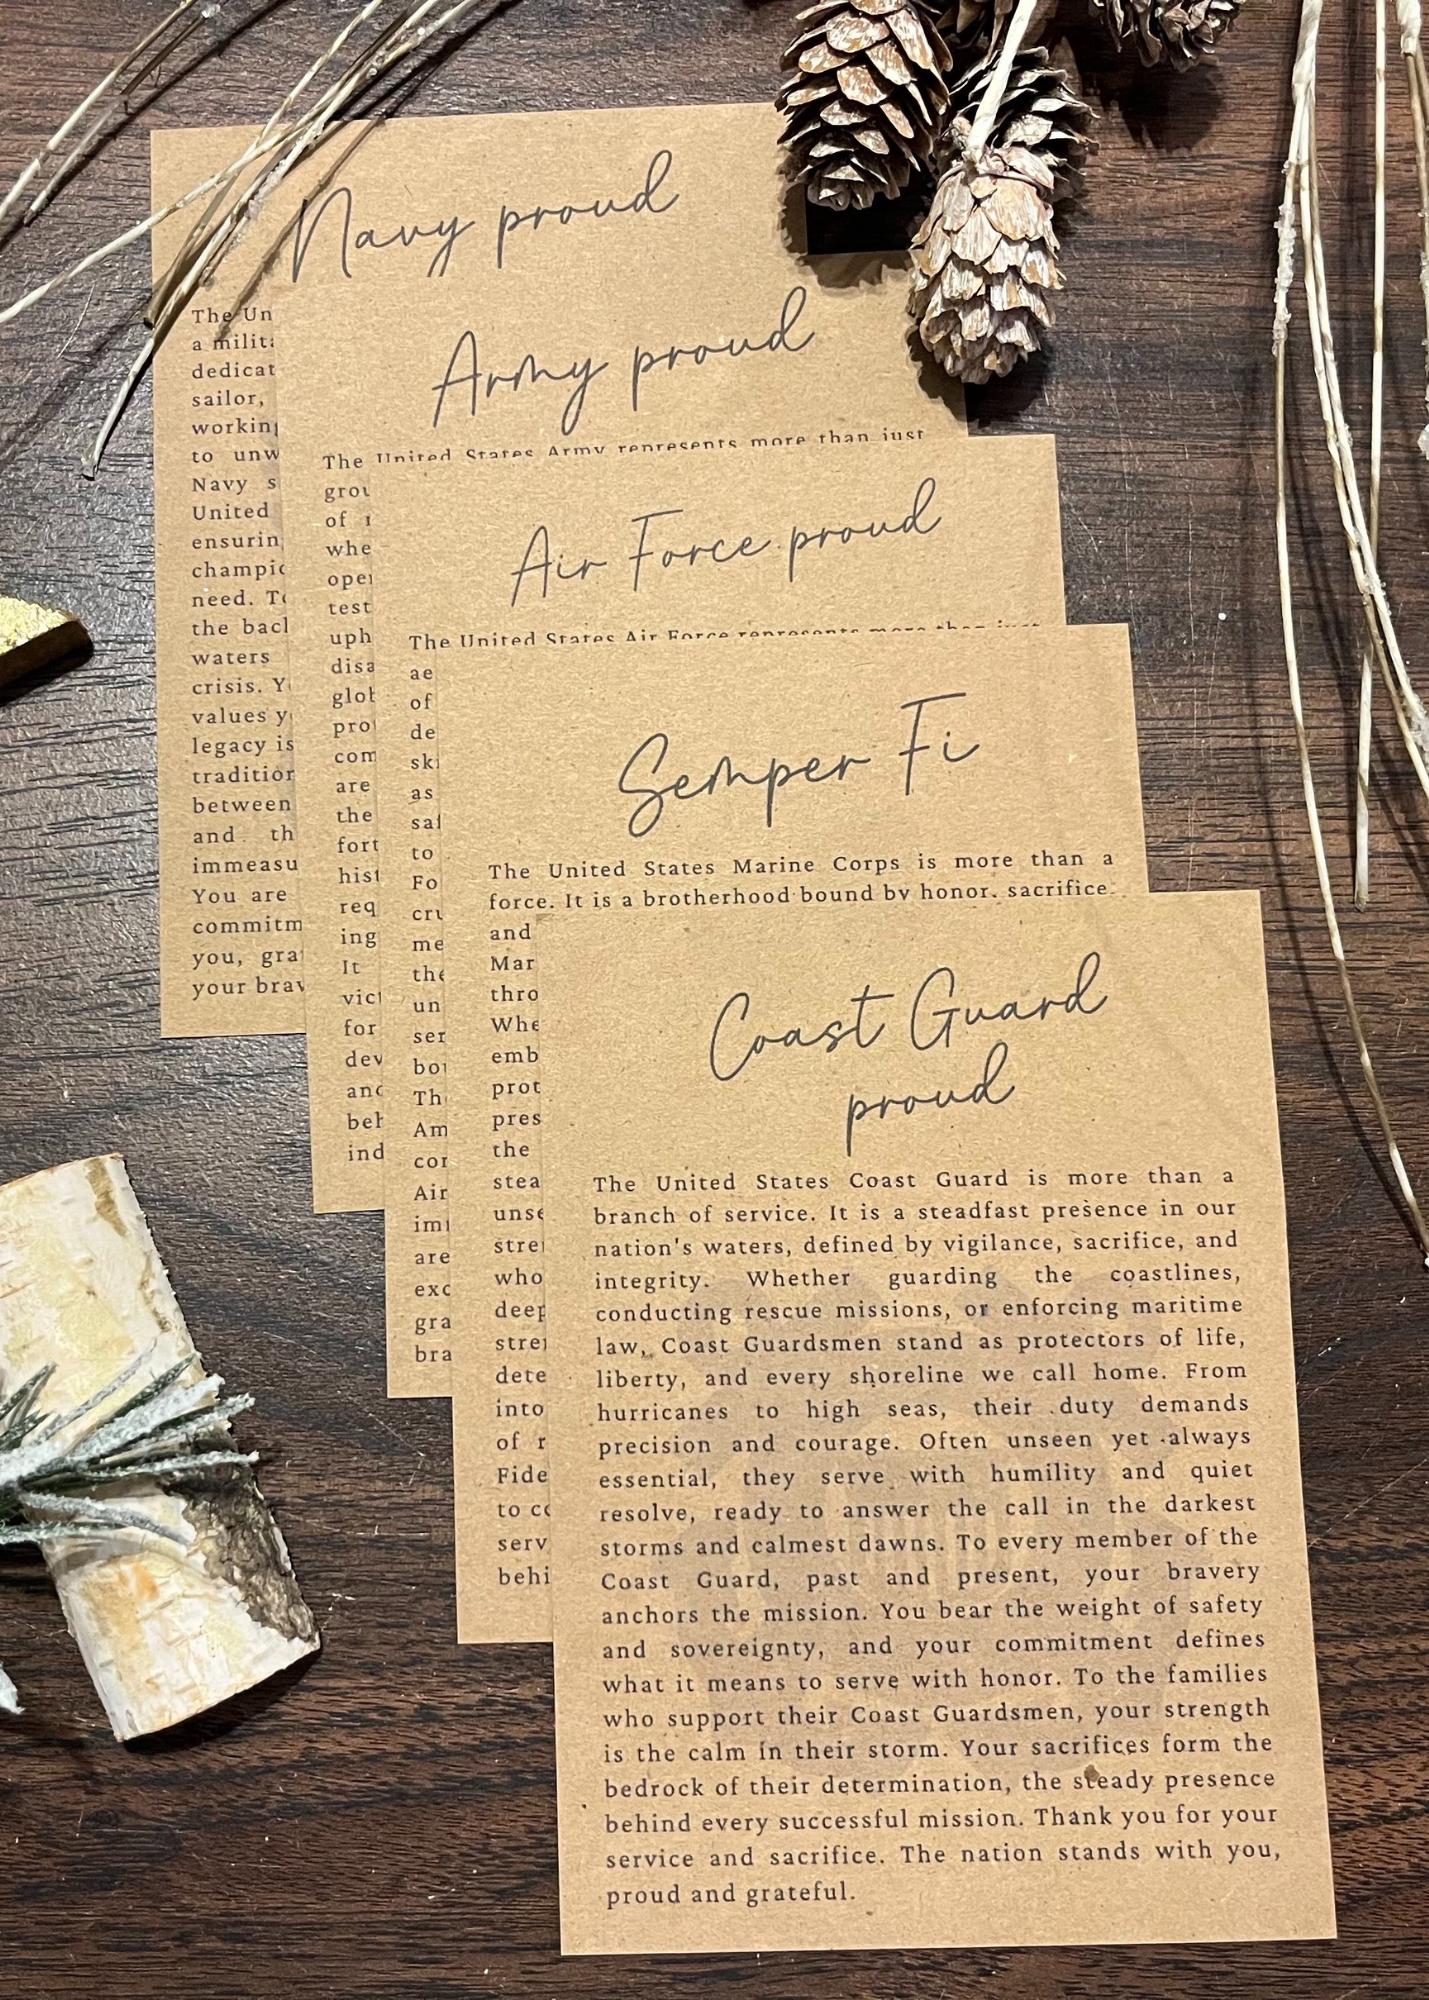 Navy proud
The Un
a
dedicat
sailor,
working
to unw
Navy s
United
ensurin
champio
need. To
the back
waters
crisis. Y
values y
legacy is
tradition
between
and th
immeasu
You are
commitm
you, gra
your brav
Army proud
The United States Army represents more than just
of
whe
oper
test
uph
disa
glob
pro
com
are
the
fort
hist
req
ing
It
vict
for
dev
and
beh
ind
Air Force proud
The United States Air Force represents more than just
ae
of
de
ski
as
saf
to
Fo
cru
me
the
un
ser
bo
Th
Am
cor
Air
im
are
exc
gra
bra
Semper Fi
The United States Marine Corps is more than a
force. It is a brotherhood bound by honor, sacrifice
and
Mar
thro
Whe
emb
prot
pres
the
stea
unse
stre
who
deep
stre
dete
into
of r
Fide
to co
serv
behi
Coast Guard
proud
The United States Coast Guard is more than a
branch of service. It is a steadfast presence in our
nation's waters, defined by vigilance, sacrifice, and
integrity. Whether guarding the coastlines,
conducting rescue missions, or enforcing maritime
law, Coast Guardsmen stand as protectors of life,
liberty, and every shoreline we call home. From
hurricanes to high seas, their duty demands
precision and courage. Often unseen yet always
essential, they serve with humility and quiet
resolve, ready to answer the call in the darkest
storms and calmest dawns. To every member of the
Coast Guard, past and present, your bravery
anchors the mission. You bear the weight of safety
and sovereignty, and your commitment defines
what it means to serve with honor. To the families
who support their Coast Guardsmen, your strength
is the calm in their storm. Your sacrifices form the
bedrock of their determination, the steady presence
behind every successful mission. Thank you for your
service and sacrifice. The nation stands with you,
proud and grateful.